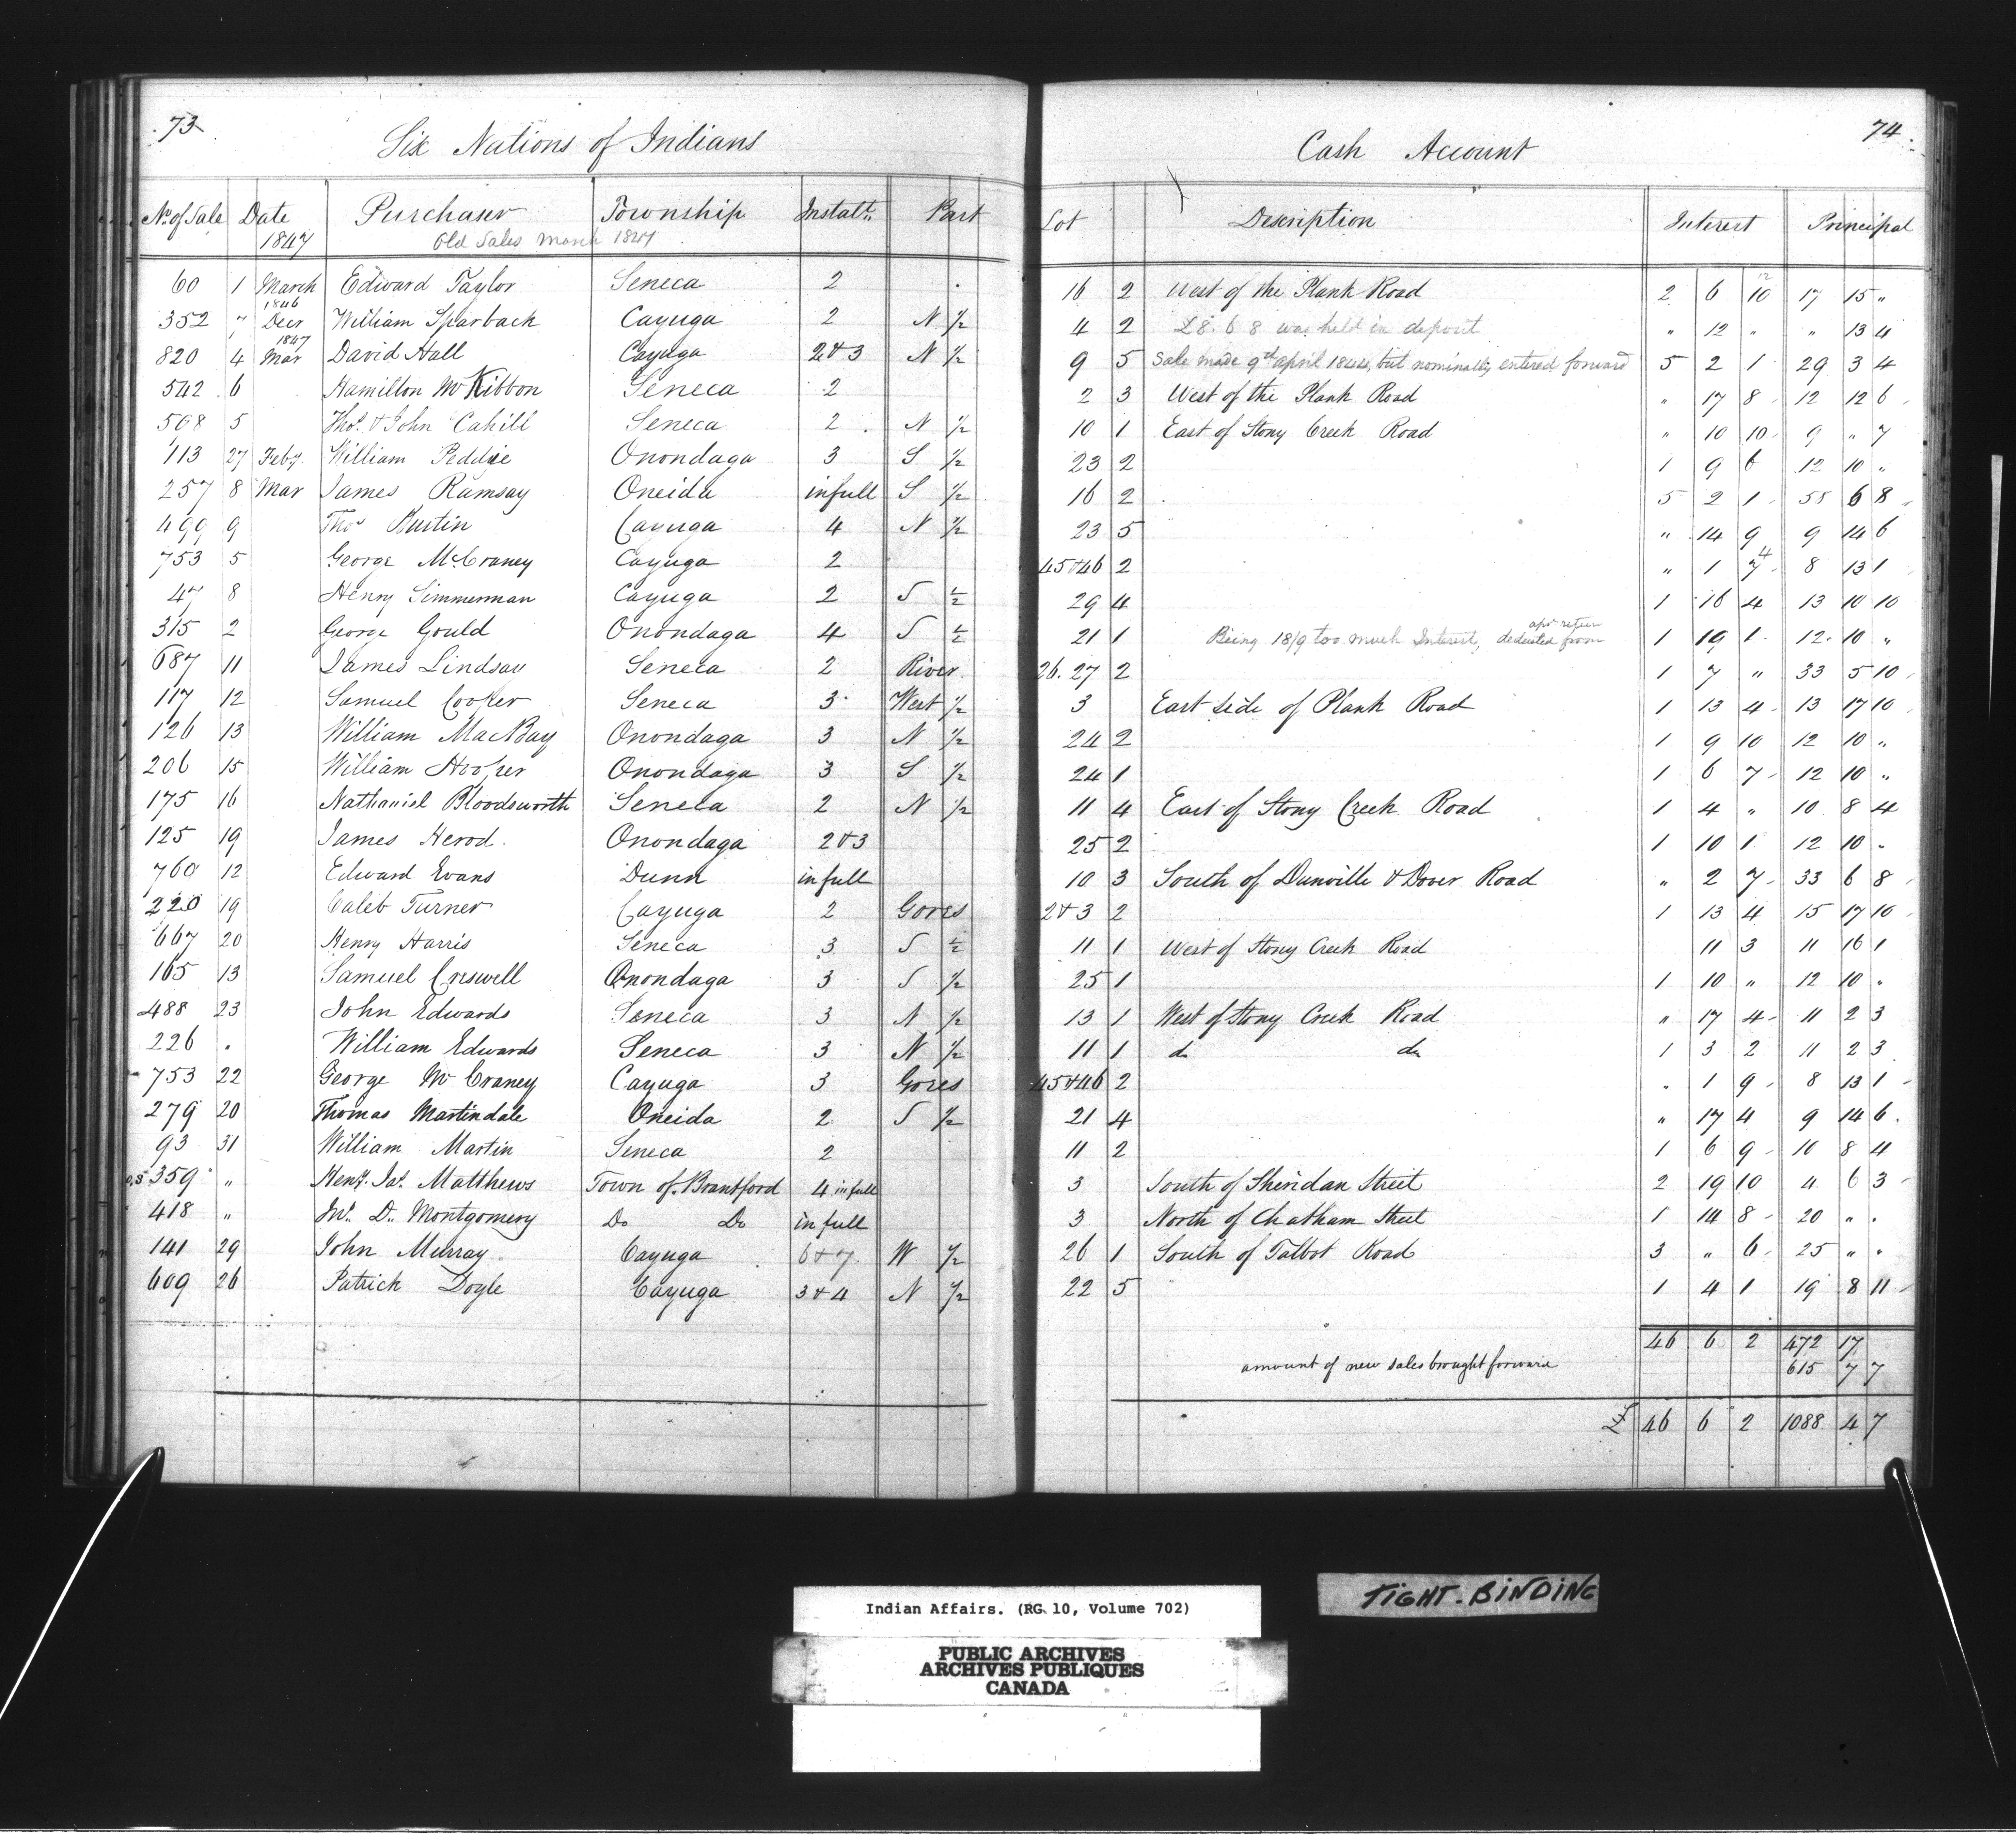 73
Six Nations of Indians
Cash Account
74
No. of Sale Date 1847 Purchaser Township Instalt. Part Lot Description Interest Principal
Old Sales March 1847
60 1 March Edward Taylor Seneca 2 16 2 West of the Plank Road 2 6 10 17 15 "
352 7 1846 Decr William Sparback Cayuga 2 N ½ 4 2 £8. 6 8 was held in deposit " 12 " " 13 4
820 4 1847 Mar David Hall Cayuga 2 & 3 N ½ 9 5 Sale made 9th april 1844, but nominally entered forward 5 2 1 29 3 4
542 6 Hamilton McKibbon Seneca 2 2 3 West of the Plank Road " 17 8 12 12 6
508 5 Thos. & John Cahill Seneca 2 N ½ 10 1 East of Stony Creek Road " 10 10 9 " 7
113 27 Feby. William Peddie Onondaga 3 S ½ 23 2 1 9 6 12 10 "
257 8 Mar James Ramsay Oneida in full S ½ 16 2 5 2 1 58 6 8
499 9 Thos Bustin Cayuga 4 N ½ 23 5 " 14 9 9 14 6
753 5 George McCraney Cayuga 2 45 & 46 2 " 1 7 8 13 1
47 8 Henry Simmerman Cayuga 2 S ½ 29 4 1 16 4 13 10 10
315 2 George Gould Onondaga 4 S ½ 21 1 Being 18/9 too much Interest, deducted from apr return 1 19 1 12 10 "
687 11 James Lindsay Seneca 2 River 26. 27 2 1 7 " 33 5 10
117 12 Samuel Cooper Seneca 3 West ½ 3 East side of Plank Road 1 13 4 13 17 10
126 13 William MacBay Onondaga 3 N ½ 24 2 1 9 10 12 10 "
206 15 William Hooper Onondaga 3 S ½ 24 1 1 6 7 12 10 "
175 16 Nathaniel Bloodsworth Seneca 2 N ½ 11 4 East of Stony Creek Road 1 4 " 10 8 4
125 19 James Herod Onondaga 2 & 3 25 2 1 10 1 12 10 "
760 12 Edward Evans Dunn in full 10 3 South of Dunville & Dover Road " 2 7 33 6 8
220 19 Caleb Turner Cayuga 2 Gores 2 & 3 2 1 13 4 15 17 10
667 20 Henry Harris Seneca 3 S ½ 11 1 West of Stony Creek Road 11 3 11 16 1
165 13 Samuel Creswell Onondaga 3 S ½ 25 1 1 10 " 12 10 "
488 23 John Edwards Seneca 3 N ½ 13 1 West of Stony Creek Road " 17 4 11 2 3
226 " William Edwards Seneca 3 N ½ 11 1 do do 1 3 2 11 2 3
753 22 George McCraney Cayuga 3 Gores 45 & 46 2 " 1 9 8 13 1
279 20 Thomas Martindale Oneida 2 S ½ 21 4 " 17 4 9 14 6
93 31 William Martin Seneca 2 11 2 1 6 9 10 8 4
359 " Heny. Jas. Matthews Town of Brantford 4 in full 3 South of Sheridan Street 2 19 10 4 6 3
418 " Jno. D. Montgomery Do Do in full 3 North of Chatham Street 1 14 8 20 " "
141 29 John Murray Cayuga 6 & 7 W ½ 26 1 South of Talbot Road 3 " 6 25 " "
609 26 Patrick Doyle Cayuga 3 & 4 N ½ 22 5 1 4 1 19 8 11
46 6 2 472 17
amount of new sales brought forward 615 7 7
£ 46 6 2 1088 4 7
TIGHT-BINDING
Indian Affairs. (RG 10, Volume 702)
PUBLIC ARCHIVES
ARCHIVES PUBLIQUES
CANADA